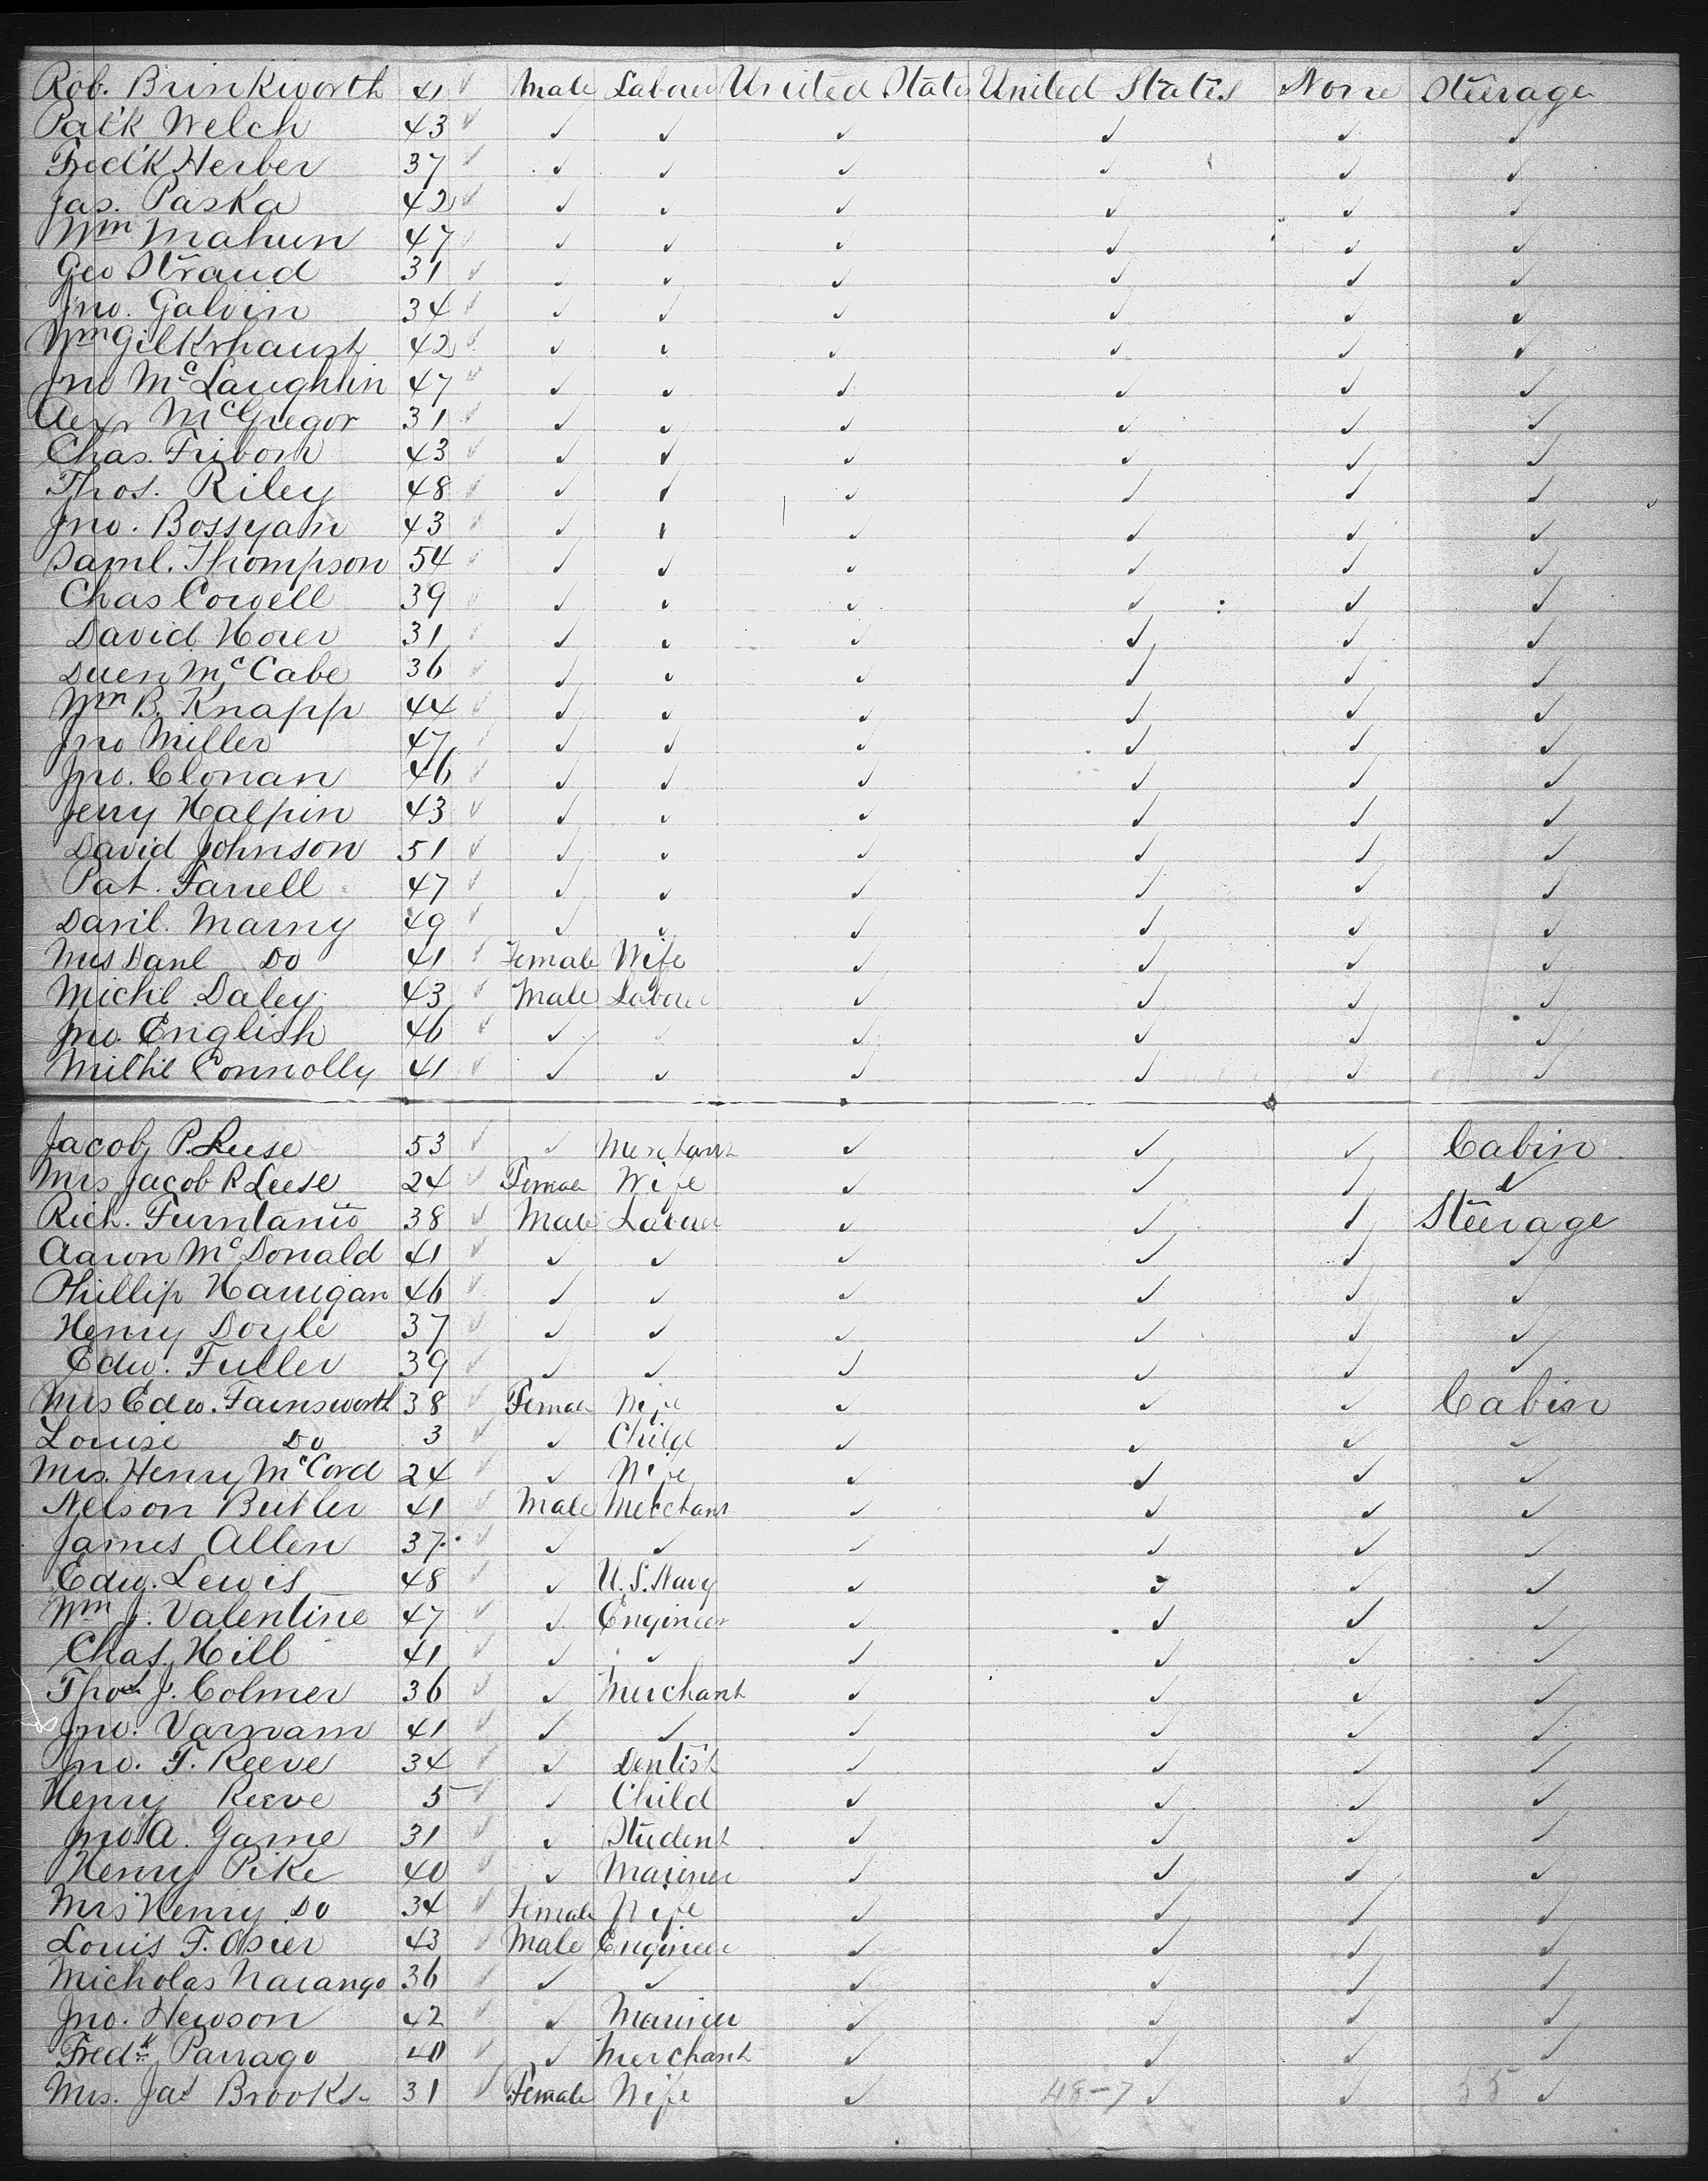 Rob. Brinkworth 41 ✓ Male Labouer United States United States None Steerage
Pat'k Welch 43 ✓ ✓ ✓ ✓ ✓ ✓ ✓
Fred'k Herber 37 ✓ ✓ ✓ ✓ ✓ ✓ ✓
Jas. Paska 42 ✓ ✓ ✓ ✓ ✓ ✓ ✓
Wm Mahun 47 ✓ ✓ ✓ ✓ ✓ ✓ ✓
Geo Straud 31 ✓ ✓ ✓ ✓ ✓ ✓ ✓
Jno. Galvin 34 ✓ ✓ ✓ ✓ ✓ ✓ ✓
Wm Gilkrhaust 42 ✓ ✓ ✓ ✓ ✓ ✓ ✓
Jno McLaughlin 47 ✓ ✓ ✓ ✓ ✓ ✓ ✓
Alexr McGregor 31 ✓ ✓ ✓ ✓ ✓ ✓ ✓
Chas. Fribom 43 ✓ ✓ ✓ ✓ ✓ ✓ ✓
Thos. Riley 48 ✓ ✓ ✓ ✓ ✓ ✓ ✓
Jno. Bossyam 43 ✓ ✓ ✓ ✓ ✓ ✓ ✓
Saml. Thompson 54 ✓ ✓ ✓ ✓ ✓ ✓ ✓
Chas Cowell 39 ✓ ✓ ✓ ✓ ✓ ✓ ✓
David Horer 31 ✓ ✓ ✓ ✓ ✓ ✓ ✓
Duen McCabe 36 ✓ ✓ ✓ ✓ ✓ ✓ ✓
Wm B. Knapp 44 ✓ ✓ ✓ ✓ ✓ ✓ ✓
Jno Miller 47 ✓ ✓ ✓ ✓ ✓ ✓ ✓
Jno. Clonan 46 ✓ ✓ ✓ ✓ ✓ ✓ ✓
Jerry Halpin 43 ✓ ✓ ✓ ✓ ✓ ✓ ✓
David Johnson 51 ✓ ✓ ✓ ✓ ✓ ✓ ✓
Pat. Farrell 47 ✓ ✓ ✓ ✓ ✓ ✓ ✓
Danl. Marny 49 ✓ ✓ ✓ ✓ ✓ ✓ ✓
Mrs Danl Do 41 ✓ Female Wife ✓ ✓ ✓ ✓
Michl Daley 43 ✓ Male Labouer ✓ ✓ ✓ ✓
Jno. English 46 ✓ ✓ ✓ ✓ ✓ ✓ ✓
Michl Connolly 41 ✓ ✓ ✓ ✓ ✓ ✓ ✓
Jacob P. Leese 53 ✓ ✓ Merchant ✓ ✓ ✓ Cabin
Mrs Jacob P. Leese 24 ✓ Female Wife ✓ ✓ ✓ ✓
Rich. Furntanio 38 ✓ Male Labouer ✓ ✓ ✓ Steerage
Aaron McDonald 41 ✓ ✓ ✓ ✓ ✓ ✓ ✓
Phillip Harrigan 46 ✓ ✓ ✓ ✓ ✓ ✓ ✓
Henry Doyle 37 ✓ ✓ ✓ ✓ ✓ ✓ ✓
Edw. Fuller 39 ✓ ✓ ✓ ✓ ✓ ✓ ✓
Mrs Edw. Farnsworth 38 ✓ Female Wife ✓ ✓ ✓ Cabin
Louise Do 3 ✓ ✓ Child ✓ ✓ ✓ ✓
Mrs. Henry McCord 24 ✓ ✓ Wife ✓ ✓ ✓ ✓
Nelson Butler 41 ✓ Male Merchant ✓ ✓ ✓ ✓
James Allen 37 ✓ ✓ ✓ ✓ ✓ ✓ ✓
Edw. Lewis 48 ✓ ✓ U.S. Navy ✓ ✓ ✓ ✓
Wm J. Valentine 47 ✓ ✓ Engineer ✓ ✓ ✓ ✓
Chas. Hill 41 ✓ ✓ ✓ ✓ ✓ ✓ ✓
Thos J. Colmer 36 ✓ ✓ Merchant ✓ ✓ ✓ ✓
Jno. Varnam 41 ✓ ✓ ✓ ✓ ✓ ✓ ✓
Jno. F. Reeve 34 ✓ ✓ Dentist ✓ ✓ ✓ ✓
Henry Reeve 5 ✓ ✓ Child ✓ ✓ ✓ ✓
Jno. A. Game 31 ✓ ✓ Student ✓ ✓ ✓ ✓
Henry Pike 40 ✓ ✓ Mariner ✓ ✓ ✓ ✓
Mrs Henry Do 34 ✓ Female Wife ✓ ✓ ✓ ✓
Louis F. Osier 43 ✓ Male Engineer ✓ ✓ ✓ ✓
Micholas Narango 36 ✓ ✓ ✓ ✓ ✓ ✓ ✓
Jno. Hewson 42 ✓ ✓ Mariner ✓ ✓ ✓ ✓
Fredk Parrago 40 ✓ ✓ Merchant ✓ ✓ ✓ ✓
Mrs. Jas Brooks 31 ✓ Female Wife ✓ 48-7 ✓ ✓ 55 ✓